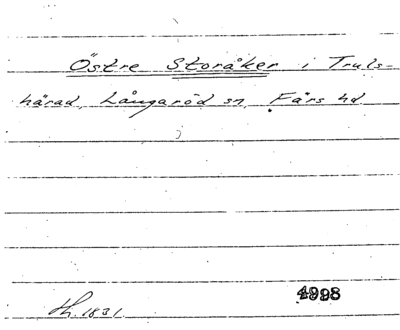 Östre Storåker i Truls-
härad, Långaröd sn, Färs hd
Sk. 1831
4998